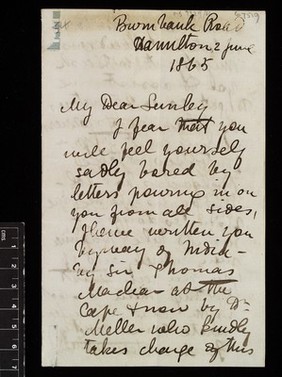 57519
Burnbank Road
Hamilton 2 June
1865
My Dear Sunley
I fear that you
will feel yourself
sadly bored by
letters pouring in on
you from all sides,
I have written you
by way of India -
by Sir Thomas
Maclear at the
Cape & now by Dr
Meller who kindly
takes charge of this